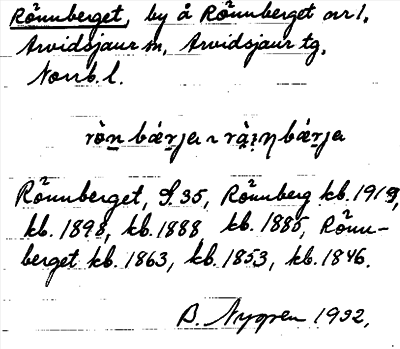 Rönnberget, by å Rönnberget nr 1.
Arvidsjaur sn, Arvidsjaur tg.
Norrb. l.
ròn bǽrja ~ rȧın bǽrja
Rönnberget, S. 35, Rönnberg kb. 1919,
kb. 1898, kb. 1888 kb. 1885, Rönn-
berget kb. 1863, kb. 1853, kb. 1846.
B. Nygren 1932.